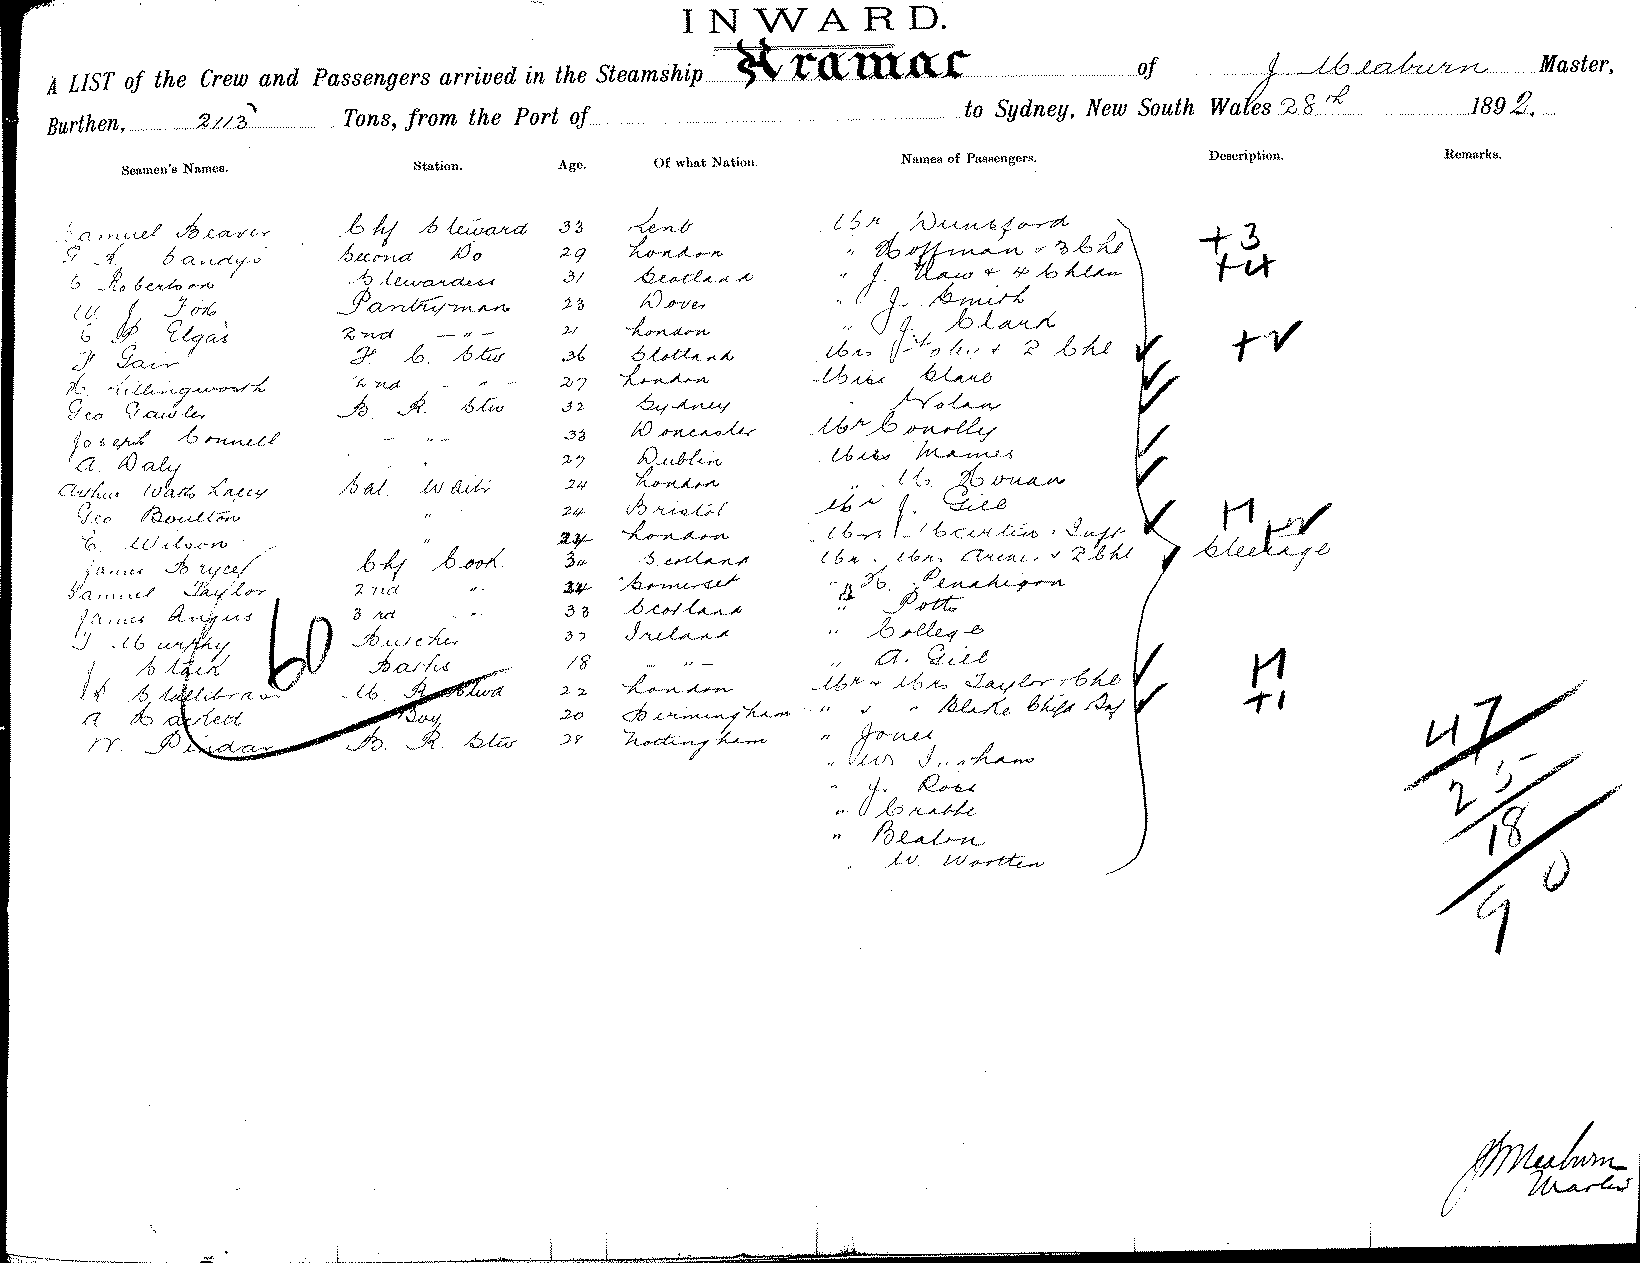 INWARD.
A LIST of the Crew and Passengers arrived in the Steamship Aramac of J Meaburn Master,
Burthen, 2113 Tons, from the Port of to Sydney, New South Wales 28th 1892.
Seamen's Names. Station. Age. Of what Nation. Names of Passengers. Description. Remarks.
Samuel Beaver Chf Steward 33 Kent Mr Dunsford
Sandys Second Do 29 London " Hoffman & 3 Chl +3
C Robertson Stewardess 31 Scotland " J. Haw & 4 Chldn +4
W J Fox Pantryman 23 Dover " J. Smith
E P Elgar 2nd - " - 21 London " J. Clark
F Gair F. C. Stw 36 Scotland Mrs & 2 Chl +2
H. Killingworth 2nd - " - 27 London Miss Clare
Geo Gawler B. R. Stw 32 Sydney Nolan
Joseph Connell - " - 33 Doncaster Mr Conolly
A. Daly " 27 Dublin Miss Mames
Arthur Watts Lacey Sal. Waiter 24 London " M. Honan
Geo Boulton " 24 Bristol Mr J. Gill
C. Wilson " 24 London Mrs Martin & Inft +1
James Bryce Chf Cook 30 Scotland Mr & Mrs & 2 Chl Steerage
Samuel Taylor 2nd " 24 Somerset " H. Penahigon
James Angus 3rd " 33 Scotland " Potts
T Murphy Butcher 37 Ireland " College
J Stack 18 - " - " A. Gill
60
Stallibrass M. R. Stwd 22 London Mr & Mrs Taylor & Chl +1
A Boy 20 Birmingham " " " Blake Chf +1
W. Pindar B. R. Stw 28 Nottingham " Jones
" W
" J. Ross
" Crabbe
" Beaton
W. Wootten
47
25
18
0
9
J Meaburn
Master